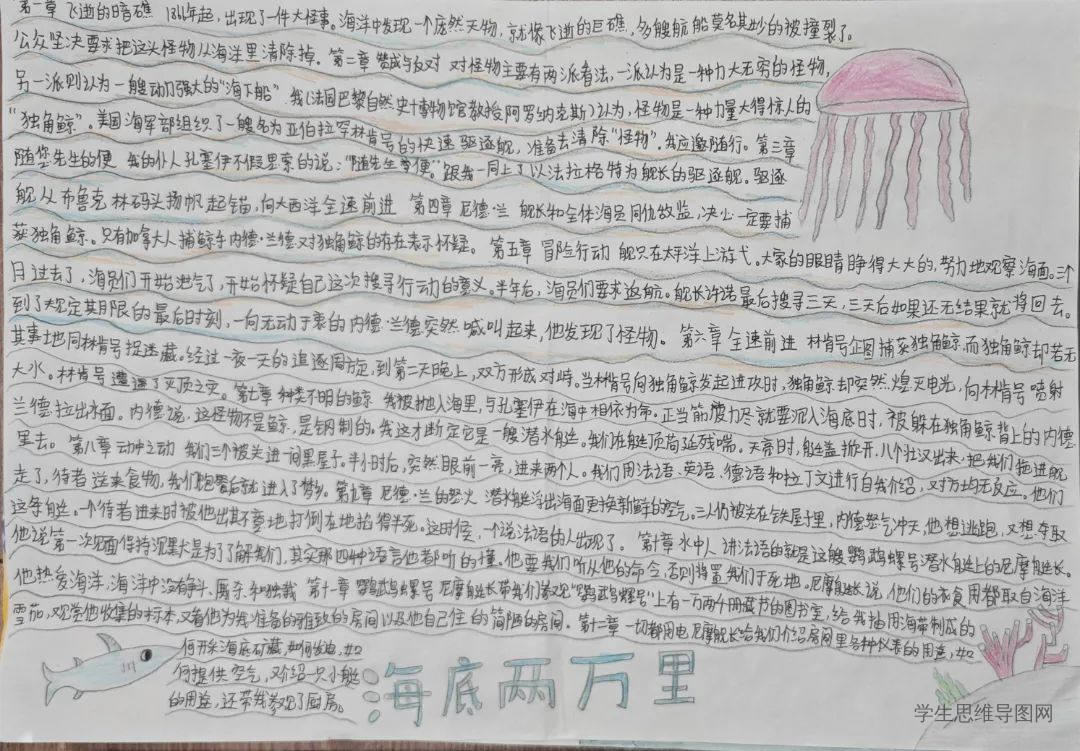 第一章 飞逝的暗礁 1866年起,出现了一件大怪事。海洋中发现一个庞然大物,就像飞逝的巨礁,多艘航船莫名其妙的被撞裂了。
公众坚决要求把这头怪物从海洋里清除掉。第二章 赞成与反对 对怪物主要有两派看法,一派认为是一种力大无穷的怪物,
另一派则认为一艘动力强大的“海下船”我(法国巴黎自然史博物馆教授阿罗纳克斯)认为,怪物是一种力量大得惊人的
“独角鲸”。美国海军部组织了一艘名为亚伯拉罕林肯号的快速驱逐舰,准备去清除“怪物”。我应邀随行。第三章
随您先生的便 我的仆人孔塞伊不假思索的说:“随先生尊便”。跟我一同上了以法拉格特为舰长的驱逐舰。驱逐
舰从布鲁克林码头扬帆起锚,向大西洋全速前进 第四章 尼德·兰 舰长和全体海员同仇敌忾,决心一定要捕
获独角鲸。只有加拿大人捕鲸手内德·兰德对独角鲸的存在表示怀疑。 第五章 冒险行动 舰只在太平洋上游弋。大家的眼睛睁得大大的,努力地观察海面。三个
月过去了,海员们开始泄气了,开始怀疑自己这次搜寻行动的意义。半年后,海员们要求返航。舰长许诺最后搜寻三天,三天后如果还无结果就将回去。
到了规定其期限的最后时刻,一向无动于衷的内德·兰德突然喊叫起来,他发现了怪物。 第六章 全速前进 林肯号企图捕获独角鲸,而独角鲸却若无
其事地同林肯号捉迷藏。经过一夜一天的追逐周旋,到第二天晚上,双方形成对峙。当林肯号向独角鲸发起进攻时,独角鲸却突然熄灭电光,向林肯号喷射
大水。林肯号遭遇了灭顶之灾。第七章 种类不明的鲸 我被抛入海里,与孔塞伊在海中相依为命。正当筋疲力尽就要沉入海底时,被躲在独角鲸背上的内德
兰德拉出水面。内德说,这怪物不是鲸,是钢制的。我这才断定它是一艘潜水艇。我们在艇顶苟延残喘。天亮时,艇盖掀开,八个壮汉出来,把我们拖进舰
里去。 第八章 动中之动 我们三个被关进一间黑屋子。半小时后,突然眼前一亮,进来两个人。我们用法语、英语、德语和拉丁文进行自我介绍,对方均无反应。他们
走了,待者送来食物,我们饱餐后就进入了梦乡。第九章 尼德·兰的怒火 潜水艇浮出海面更换新鲜的空气。三人仍被关在铁屋子里,内德怒气冲天,他想逃跑,又想夺取
这条艇。一个待者进来时被他出其不意地打倒在地掐得半死。这时候,一个说法语的人出现了。 第十章 水中人 讲法语的就是这艘鹦鹉螺号潜水艇上的尼摩艇长。
他说第一次见面保持沉默是为了了解我们,其实那四种语言他都听的懂。他要我们听从他的命令,否则将置我们于死地。尼摩艇长说,他们的衣食用都取自海洋
他热爱海洋,海洋中没有争斗、屠杀和独裁 第十一章 鹦鹉螺号 尼摩艇长带我们参观“鹦鹉螺号”上有一万两千册藏书的图书室,给我抽用海带制成的
雪茄,又观赏他收集的标本,又看他为我准备的雅致的房间以及他自己住的简陋的房间。第十二章 一切都用电 尼摩舰长给我们介绍房间里各种仪表的用途,如
何开采海底矿藏,如何发电,如
何提供空气,又介绍一只小艇
的用途,还带我参观了厨房。
海底两万里
学生思维导图网